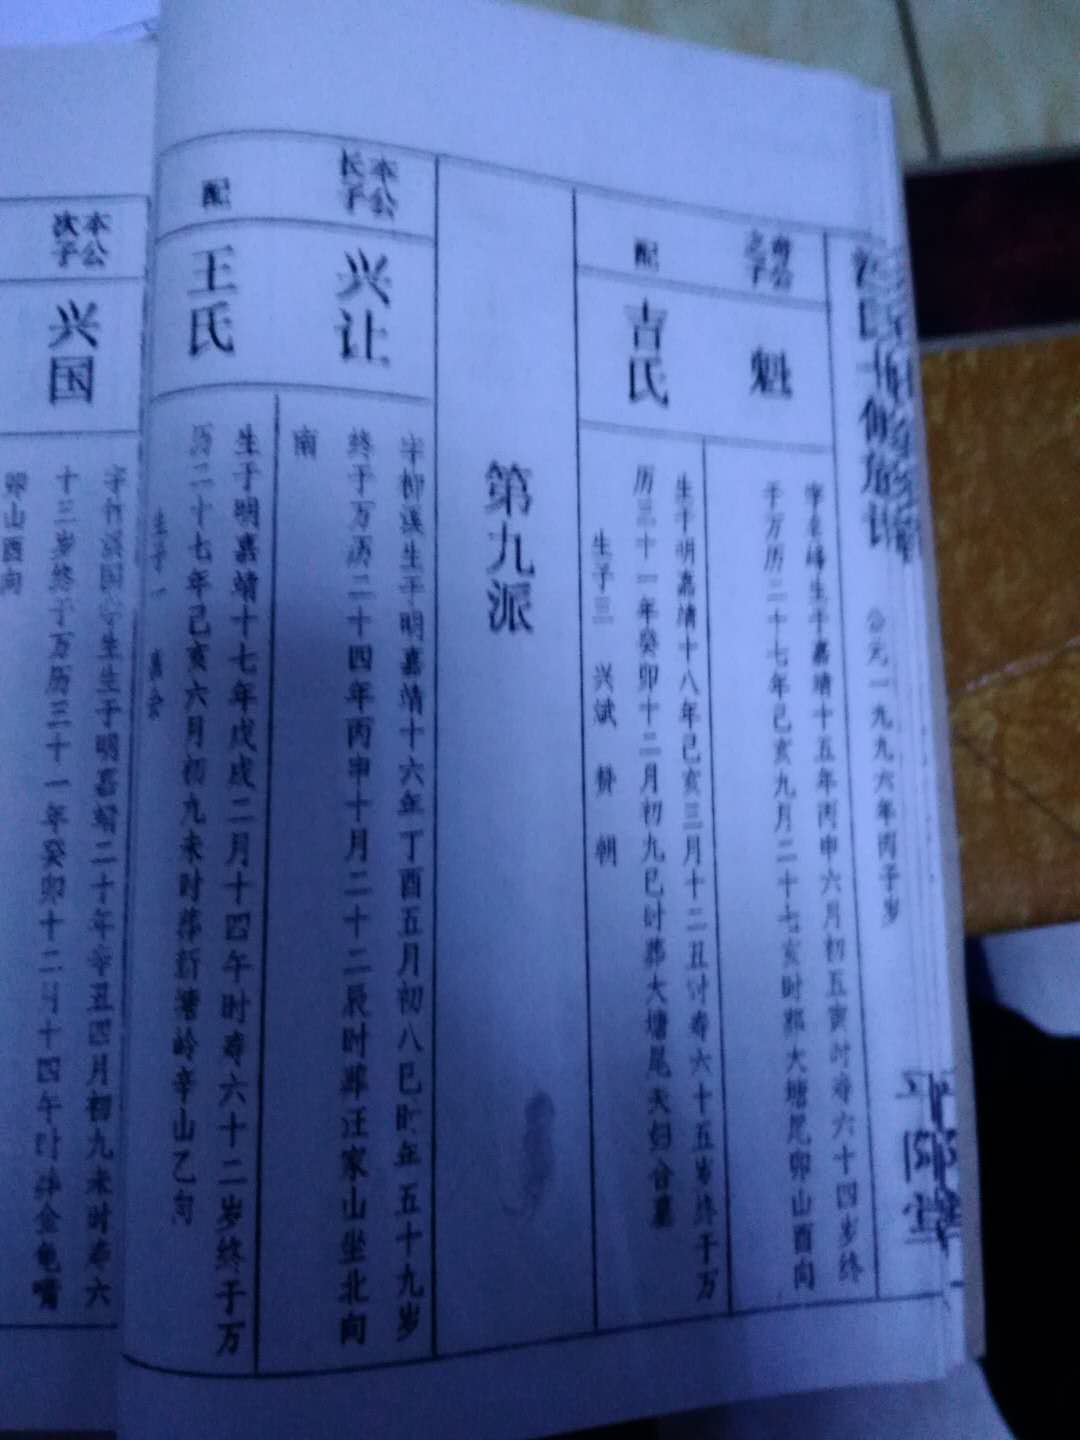 公元一九九六年丙子岁
堂
公
之子
魁
生于嘉靖十五年丙申六月初五寅时寿六十四岁终
于万历二十七年己亥九月二十七亥时葬大塘尾卯山酉向
配
吉氏
生于明嘉靖十八年己亥三月十二丑时寿六十五岁终于万
历三十一年癸卯十二月初九巳时葬大塘尾夫妇合墓
生子三 兴斌 赞 朝
第九派
本公
长子
兴让
字柳溪生于明嘉靖十六年丁酉五月初八巳时年五十九岁
终于万历二十四年丙申十月二十二辰时葬汪家山坐北向
南
配
王氏
生于明嘉靖十七年戊戌二月十四午时寿六十二岁终于万
历二十七年己亥六月初九未时葬新塘岭辛山乙向
生子一
本公
次子
兴国
字竹溪国学生生于明嘉靖二十年辛丑四月初九未时寿六
十三岁终于万历三十一年癸卯十二月十四午时葬金龟嘴
卯山酉向